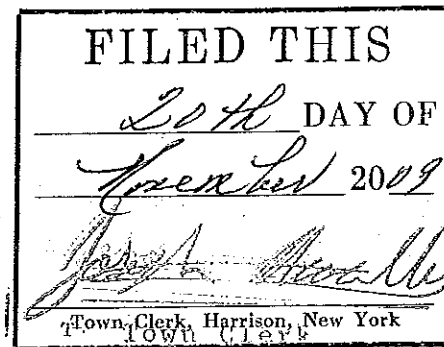 FILED THIS
20th DAY OF
November 2009
Town Clerk, Harrison, New York
Town Clerk